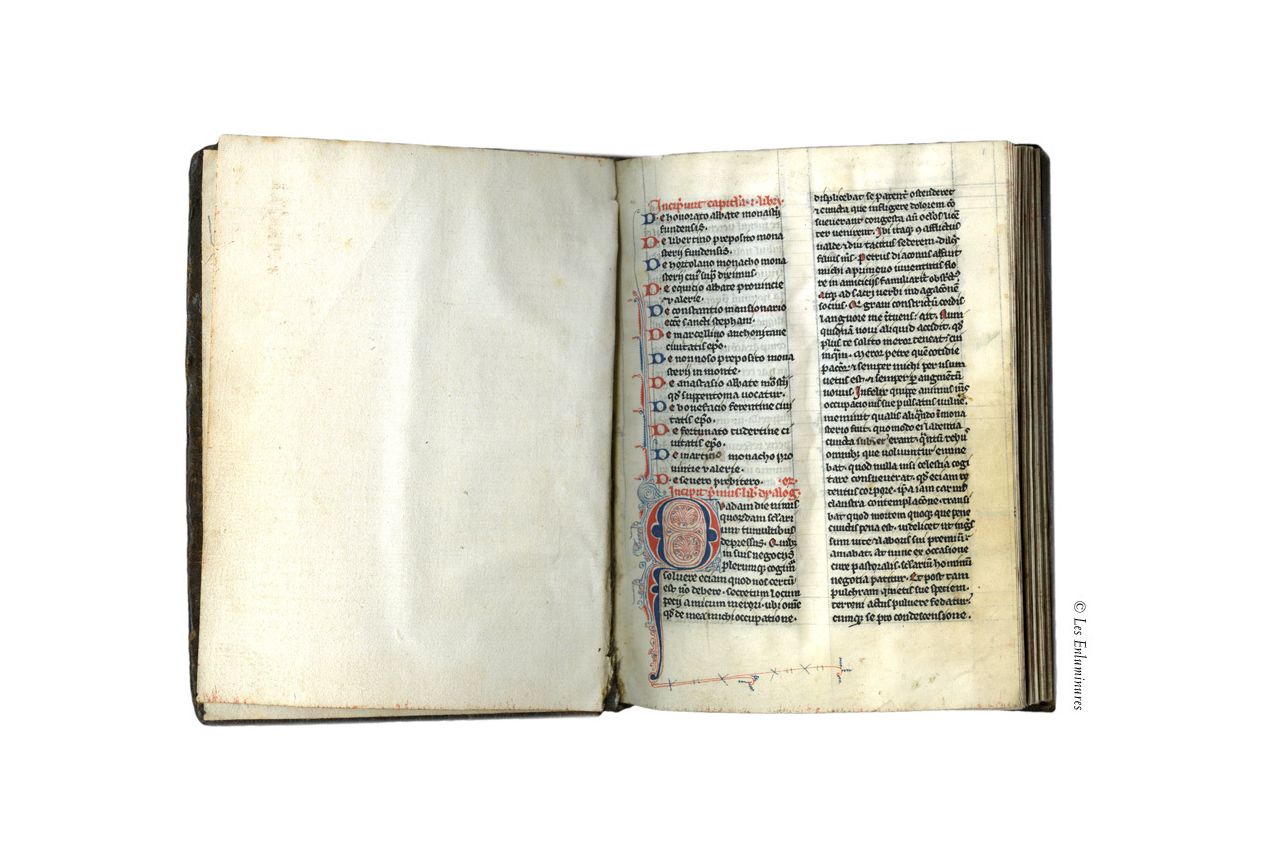 Incipiunt capitl'a · i · libri ·
De honorato abbate monast'ii
fundensis ·
De libertino preposito mona
sterii fundensis ·
De hortolano monacho mona
sterii cui' sup' diximus ·
De equicio abbate prouincie
valerie ·
De constantio mansionario
ecc'e sancti stephani ·
De marcellino anchonitane
ciuitatis ep'o ·
De nonnoso preposito mona
sterii in monte ·
De anastasio abbate mo'st'ii
qd' suppentoma uocatur ·
De bonefacio ferentine ciui
tatis ep'o ·
De fortunato tudertine ci
uitatis ep'o ·
De martino monacho pro
uintie valerie ·
De seuero presbitero ·
Incipit p'imus lib' dyalog' ·
Quadam die nimiis
quordam sc'lari
um tumultibus
depressus · Quib;
in suis negociis
plerumque cogim'
soluere eciam quod nos certu'
est no' debere · secretum locum
petii amicum merori · ubi om'e
q'd de mea michi occupatione ·
displicebat se patent' ostenderet
et cuncta que infligere dolorem co'
sueuerant congesta an' oc'los lice'
ter uenirent · Ibi itaq; 9 afflictus
ualde et diu tacitus sederem · dil'c'
filius m's · Petrus diaconus affuit
michi a primeuo iuuentutis flo
re in amiciciis familiarit' obst'ct'
atq; ad sacri uerbi indagac'one'
socius · Qi graui constrictu' cordis
languore me i'tuens · ait · Num
quidna' noui aliquid accidit · qd'
plus te solito meror teneat · cui
inq'm · Meror petre que' cotidie
pacior et semper michi per usum
uetus est · et semper p' augmentu'
nouus · Infelix quippe animus m's
occupacionis sue pulsatus uulne'
meminit qualis aliq'n'do i' mona
sterio fuit · quomodo ei labentia
cuncta subter erant · q'ntu' rebus
omnib; que uoluuntur emine
bat · quod nulla nisi celestia cogi
tare consueuerat · q'd eciam re
tentus corpore · ip'a iam carnis
claustra contemplac'one transi
bat · quod mortem quoque que pene
cunctis pena est · uidelicet ut ing's
sum uite et laboris sui premiu'
amabat · At nunc ex occasione
cure pastoralis · sc'lariu' hominu'
negotia patitur · Et post tam
pulchram quietis sue speciem ·
terreni actus puluere fedatur ·
cumq; se pro condescensione ·
© Les Enluminures